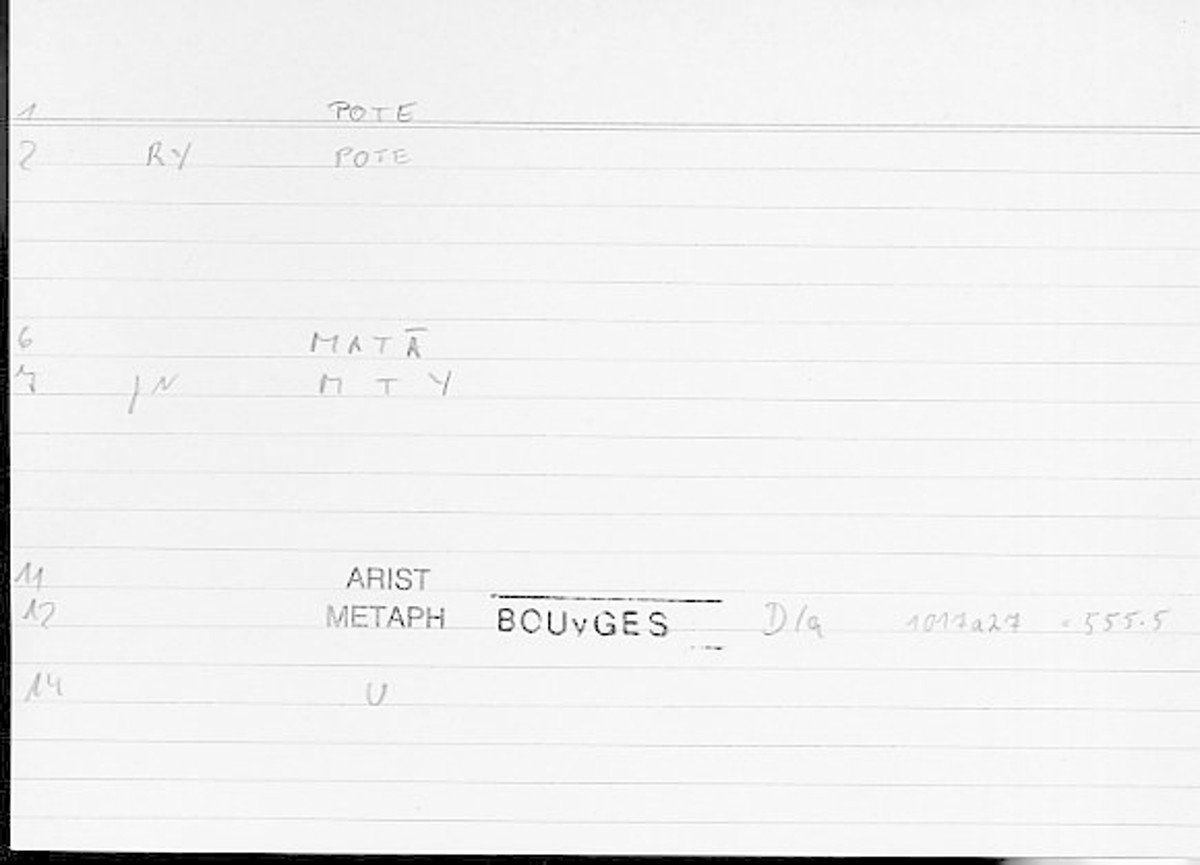 1 POTE
2 RY POTE
6 MATĀ
7 JN M T Y
11 ARIST
12 METAPH BOUvGES D/a 1017a27 = 555.5
14 U